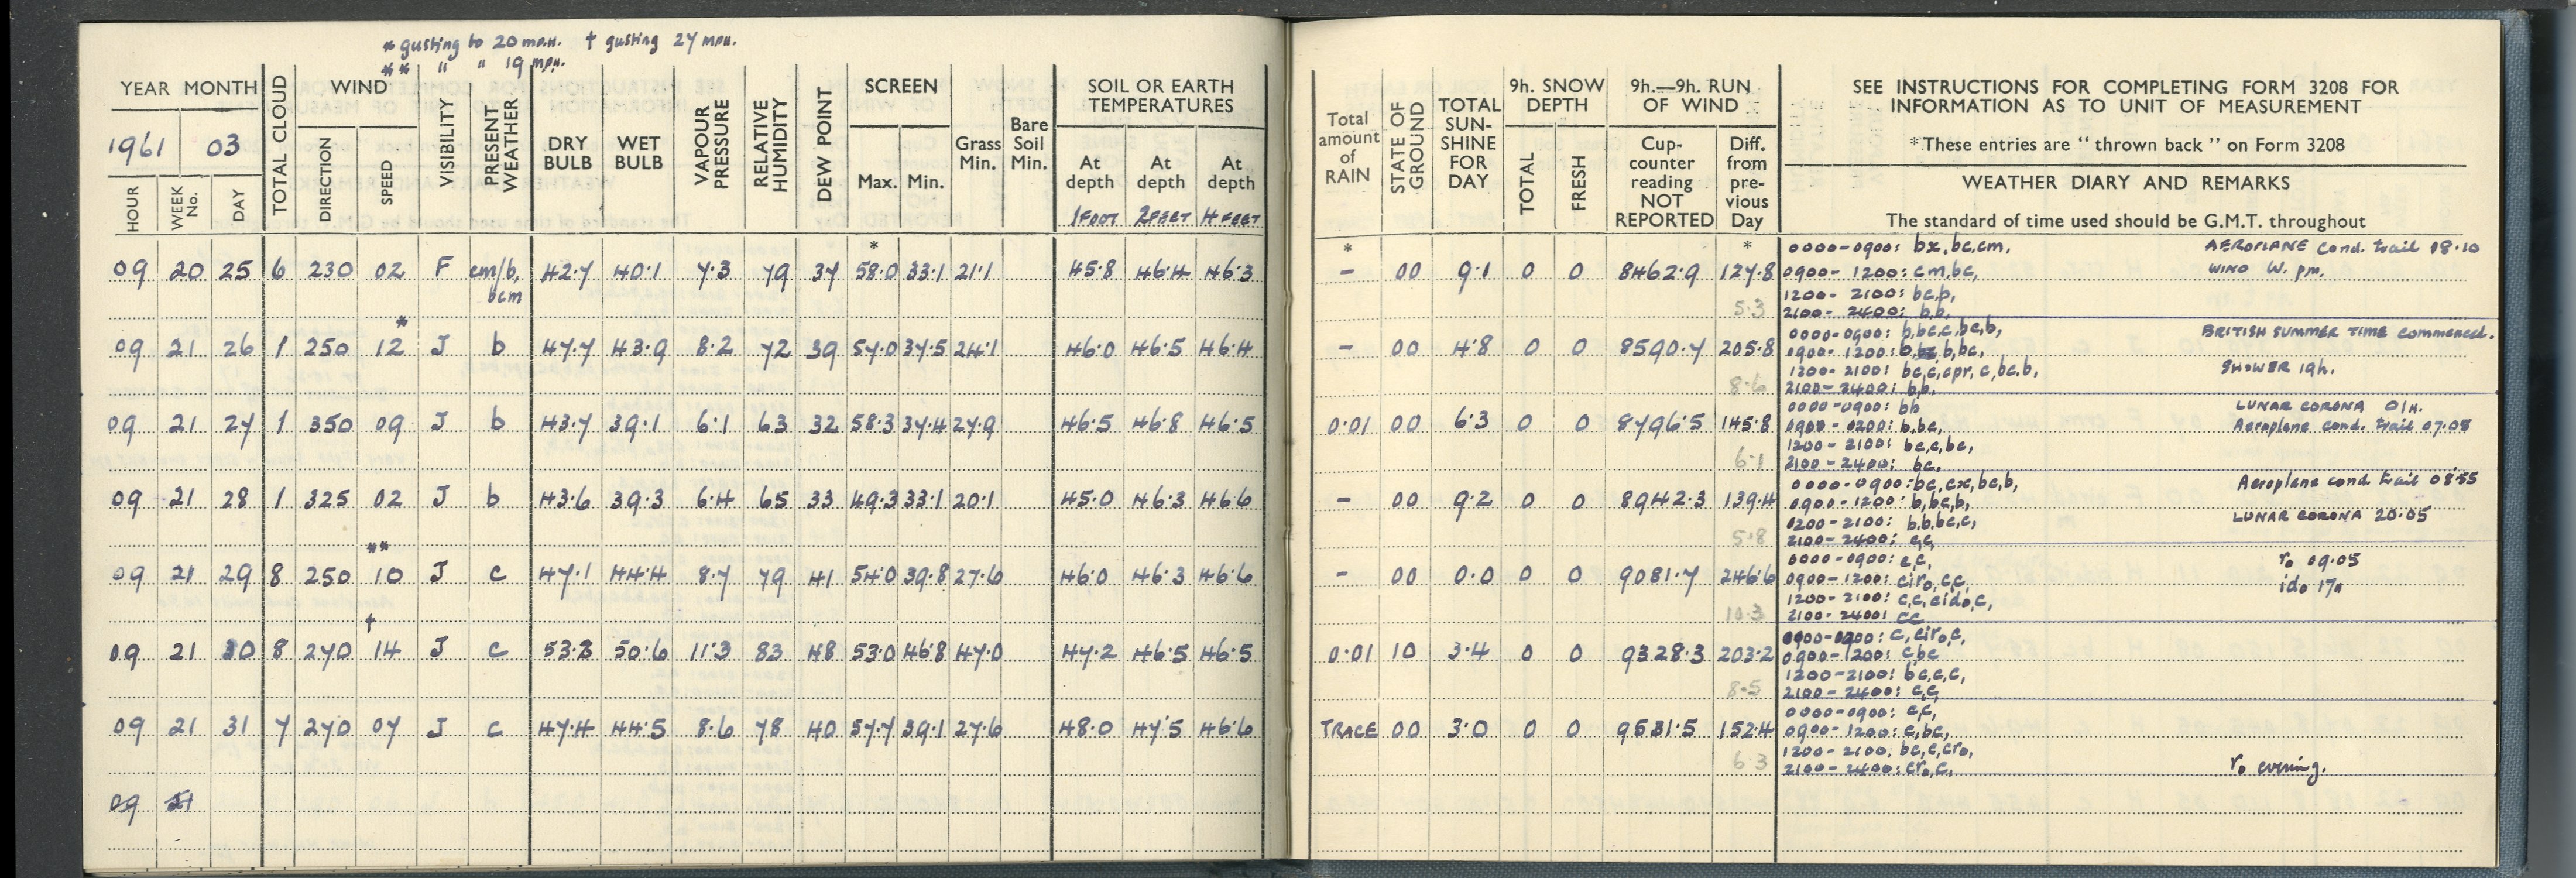 * gusting to 20 M.P.H. † gusting 27 MPH.
** " " 19 MPH.
YEAR MONTH
1961 03
HOUR WEEK No. DAY TOTAL CLOUD WIND DIRECTION SPEED VISIBILITY PRESENT WEATHER DRY BULB WET BULB VAPOUR PRESSURE RELATIVE HUMIDITY DEW POINT SCREEN Max. Min. Grass Min. Bare Soil Min.
SOIL OR EARTH TEMPERATURES
At depth At depth At depth
1 FOOT 2 FEET 4 FEET
Total amount of RAIN STATE OF GROUND TOTAL SUN- SHINE FOR DAY 9h. SNOW DEPTH TOTAL FRESH 9h.—9h. RUN OF WIND Cup- counter reading NOT REPORTED Diff. from pre- vious Day
SEE INSTRUCTIONS FOR COMPLETING FORM 3208 FOR
INFORMATION AS TO UNIT OF MEASUREMENT
* These entries are "thrown back" on Form 3208
WEATHER DIARY AND REMARKS
The standard of time used should be G.M.T. throughout
* * *
09 20 25 6 230 02 F cm/b, bcm 42.7 40.1 7.3 79 37 58.0 33.1 21.1 45.8 46.4 46.3 – 00 9.1 0 0 8462.9 127.8
5.3
0000-0900: bx, bc, cm, AEROPLANE cond. trail 08.10
0900-1200: cm, bc, WIND W. pm.
1200-2100: bc, b,
2100-2400: b,b,
*
09 21 26 1 250 12 J b 47.7 43.9 8.2 72 39 57.0 37.5 24.1 46.0 46.5 46.4 – 00 4.8 0 0 8590.7 205.8
8.6
0000-0900: b, bc, c, bc, b, BRITISH SUMMER TIME commenced.
0900-1200: b, b, bc,
1200-2100: bc, c, cpr, c, bc, b, SHOWER 19h.
2100-2400: b,b,
09 21 27 1 350 09 J b 43.7 39.1 6.1 63 32 58.3 37.4 27.9 46.5 46.8 46.5 0.01 00 6.3 0 0 8796.5 145.8
6.1
0000-0900: bb LUNAR CORONA 01H.
0900-0200: b, bc, Aeroplane cond. trail 07.08
1200-2100: bc, c, bc,
2100-2400: bc,
09 21 28 1 325 02 J b 43.6 39.3 6.4 65 33 49.3 33.1 20.1 45.0 46.3 46.6 – 00 9.2 0 0 8942.3 139.4
5.8
0000-0900: bc, cx, bc, b, Aeroplane cond trail 08.55
0900-1200: b, bc, b,
0200-2100: b, b, bc, c, LUNAR CORONA 20.05
2100-2400: c,c,
**
09 21 29 8 250 10 J c 47.1 44.4 8.7 79 41 54.0 39.8 27.6 46.0 46.3 46.6 – 00 0.0 0 0 9081.7 246.6
10.3
0000-0900: c,c, ro 09.05
0900-1200: ciro, c,c, ido 17h
1200-2100: c,c, cido, c,
2100-2400: cc
†
09 21 30 8 270 14 J c 53.2 50.6 11.3 83 48 53.0 46.8 47.0 47.2 46.5 46.5 0.01 10 3.4 0 0 9328.3 203.2
8.5
0000-0900: c, ciro, c,
0900-1200: c, bc
1200-2100: bc, c, c,
2100-2400: c,c,
09 21 31 7 270 07 J c 47.4 44.5 8.6 78 40 57.7 39.1 27.6 48.0 47.5 46.6 TRACE 00 3.0 0 0 9531.5 152.4
6.3
0000-0900: c,c,
0900-1200: c, bc,
1200-2100: bc, c, cro,
2100-2400: cro, c, ro evening.
09 21